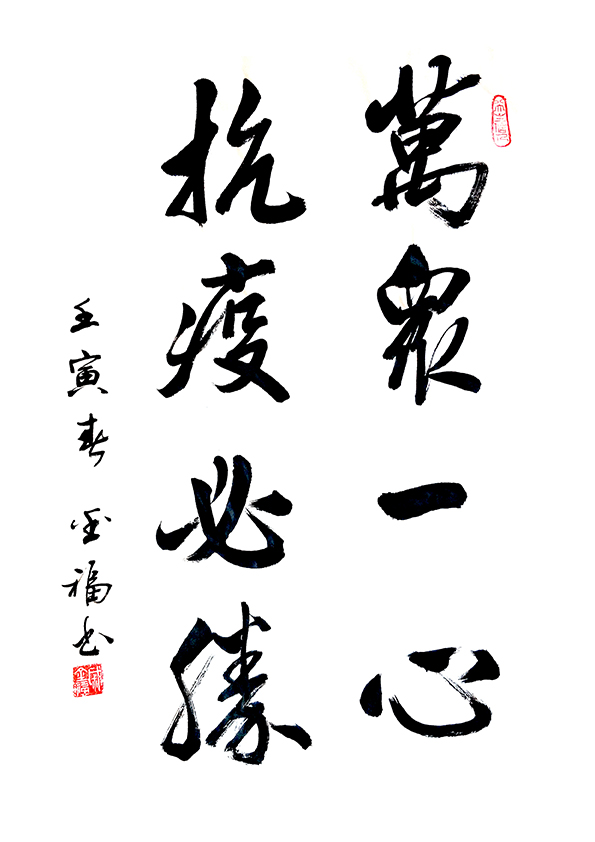 萬眾一心
抗疫必勝
壬寅春 金福书